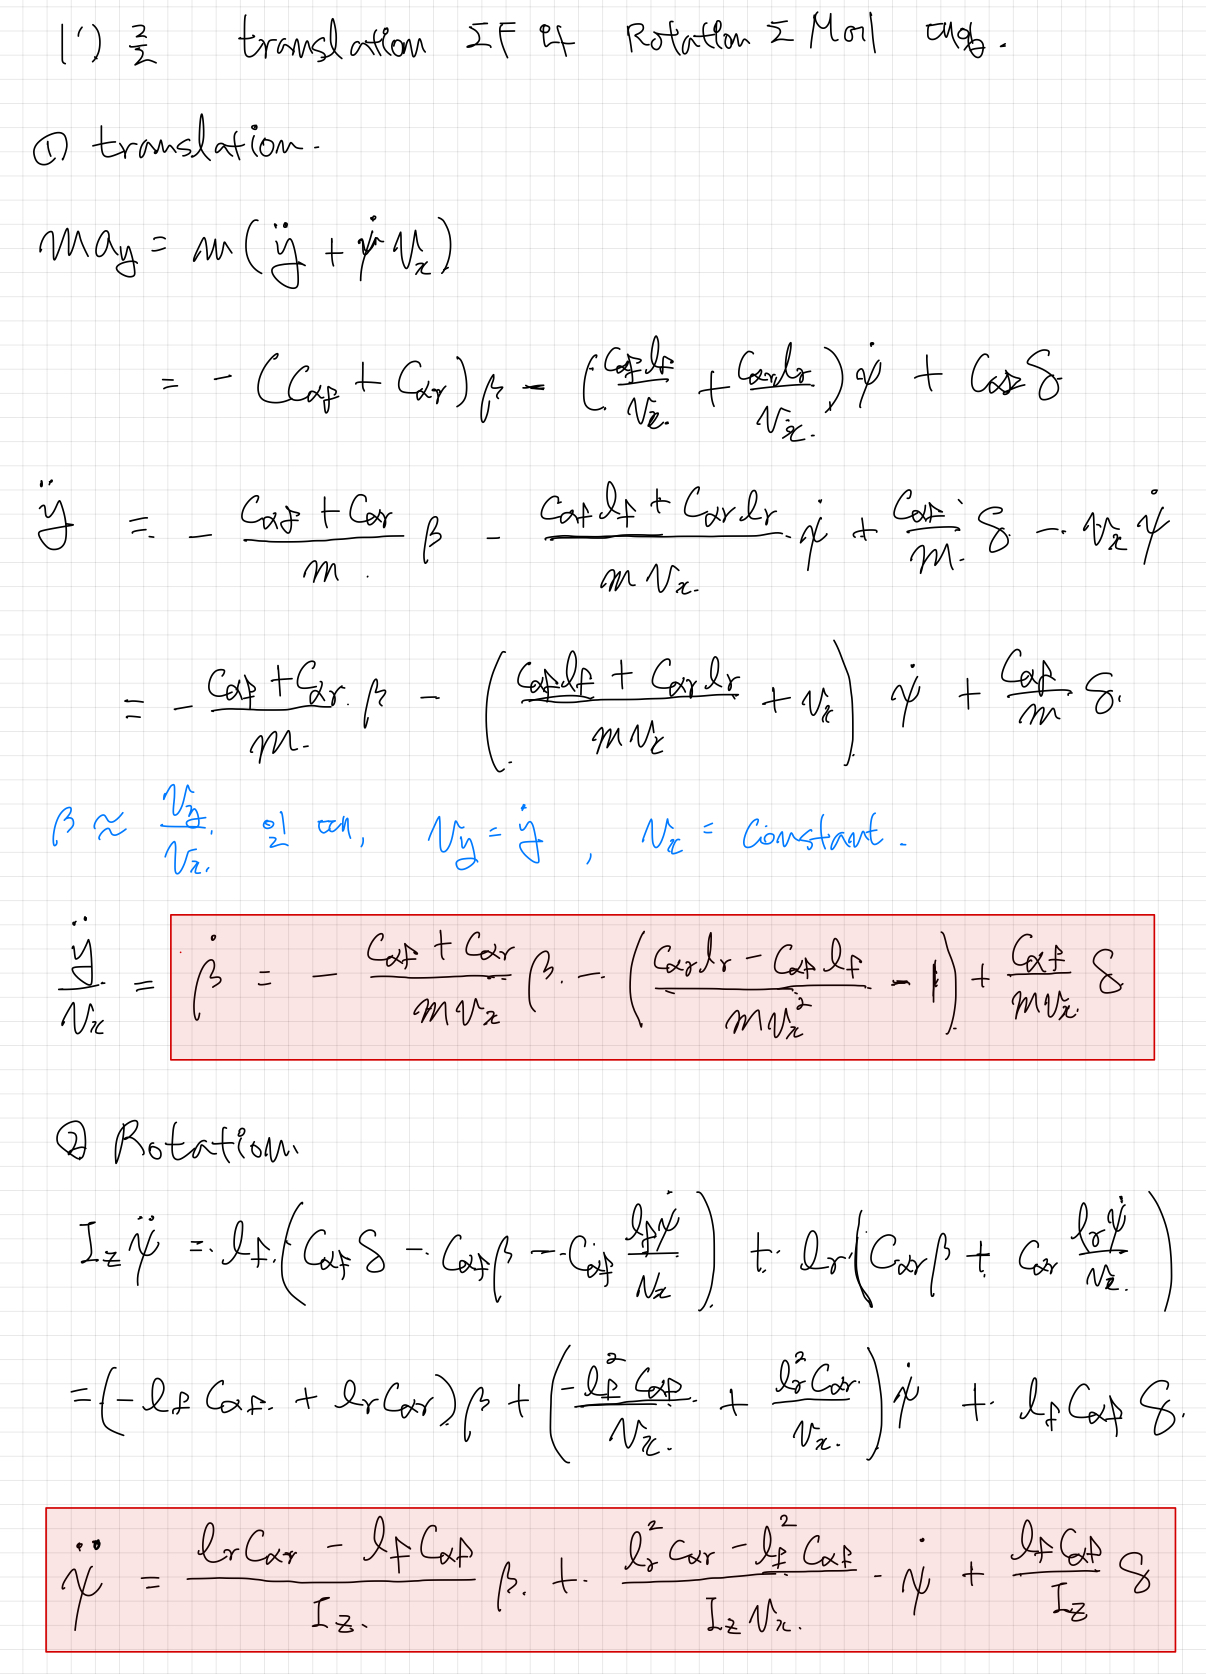 1') 즉 translation ΣF 와 Rotation ΣM의 mg.
① translation.
m a_y = m(ÿ + ψ̇ v_x)
= - (C_αf + C_αr)β - (C_αf l_f / v_x + C_αr l_r / v_x) ψ̇ + C_αf δ
ÿ = - (C_αf + C_αr)/m β - (C_αf l_f + C_αr l_r)/(m v_x) ψ̇ + C_αf/m δ - v_x ψ̇
= - (C_αf + C_αr)/m β - ((C_αf l_f + C_αr l_r)/(m v_x) + v_x) ψ̇ + C_αf/m δ.
β ≈ v_y/v_x 일 때, v_y = ẏ , v_x = constant.
ÿ/v_x = β̇ = - (C_αf + C_αr)/(m v_x) β - ((C_αr l_r - C_αf l_f)/(m v_x²) - 1) + C_αf/(m v_x) δ
② Rotation.
I_z ψ̈ = l_f (C_αf δ - C_αf β - C_αf l_f ψ̇/v_x) + l_r (C_αr β + C_αr l_r ψ̇/v_x)
= (-l_f C_αf + l_r C_αr)β + (-l_f² C_αf/v_x + l_r² C_αr/v_x) ψ̇ + l_f C_αf δ.
ψ̈ = (l_r C_αr - l_f C_αf)/I_z β + (l_r² C_αr - l_f² C_αf)/(I_z v_x) ψ̇ + l_f C_αf/I_z δ